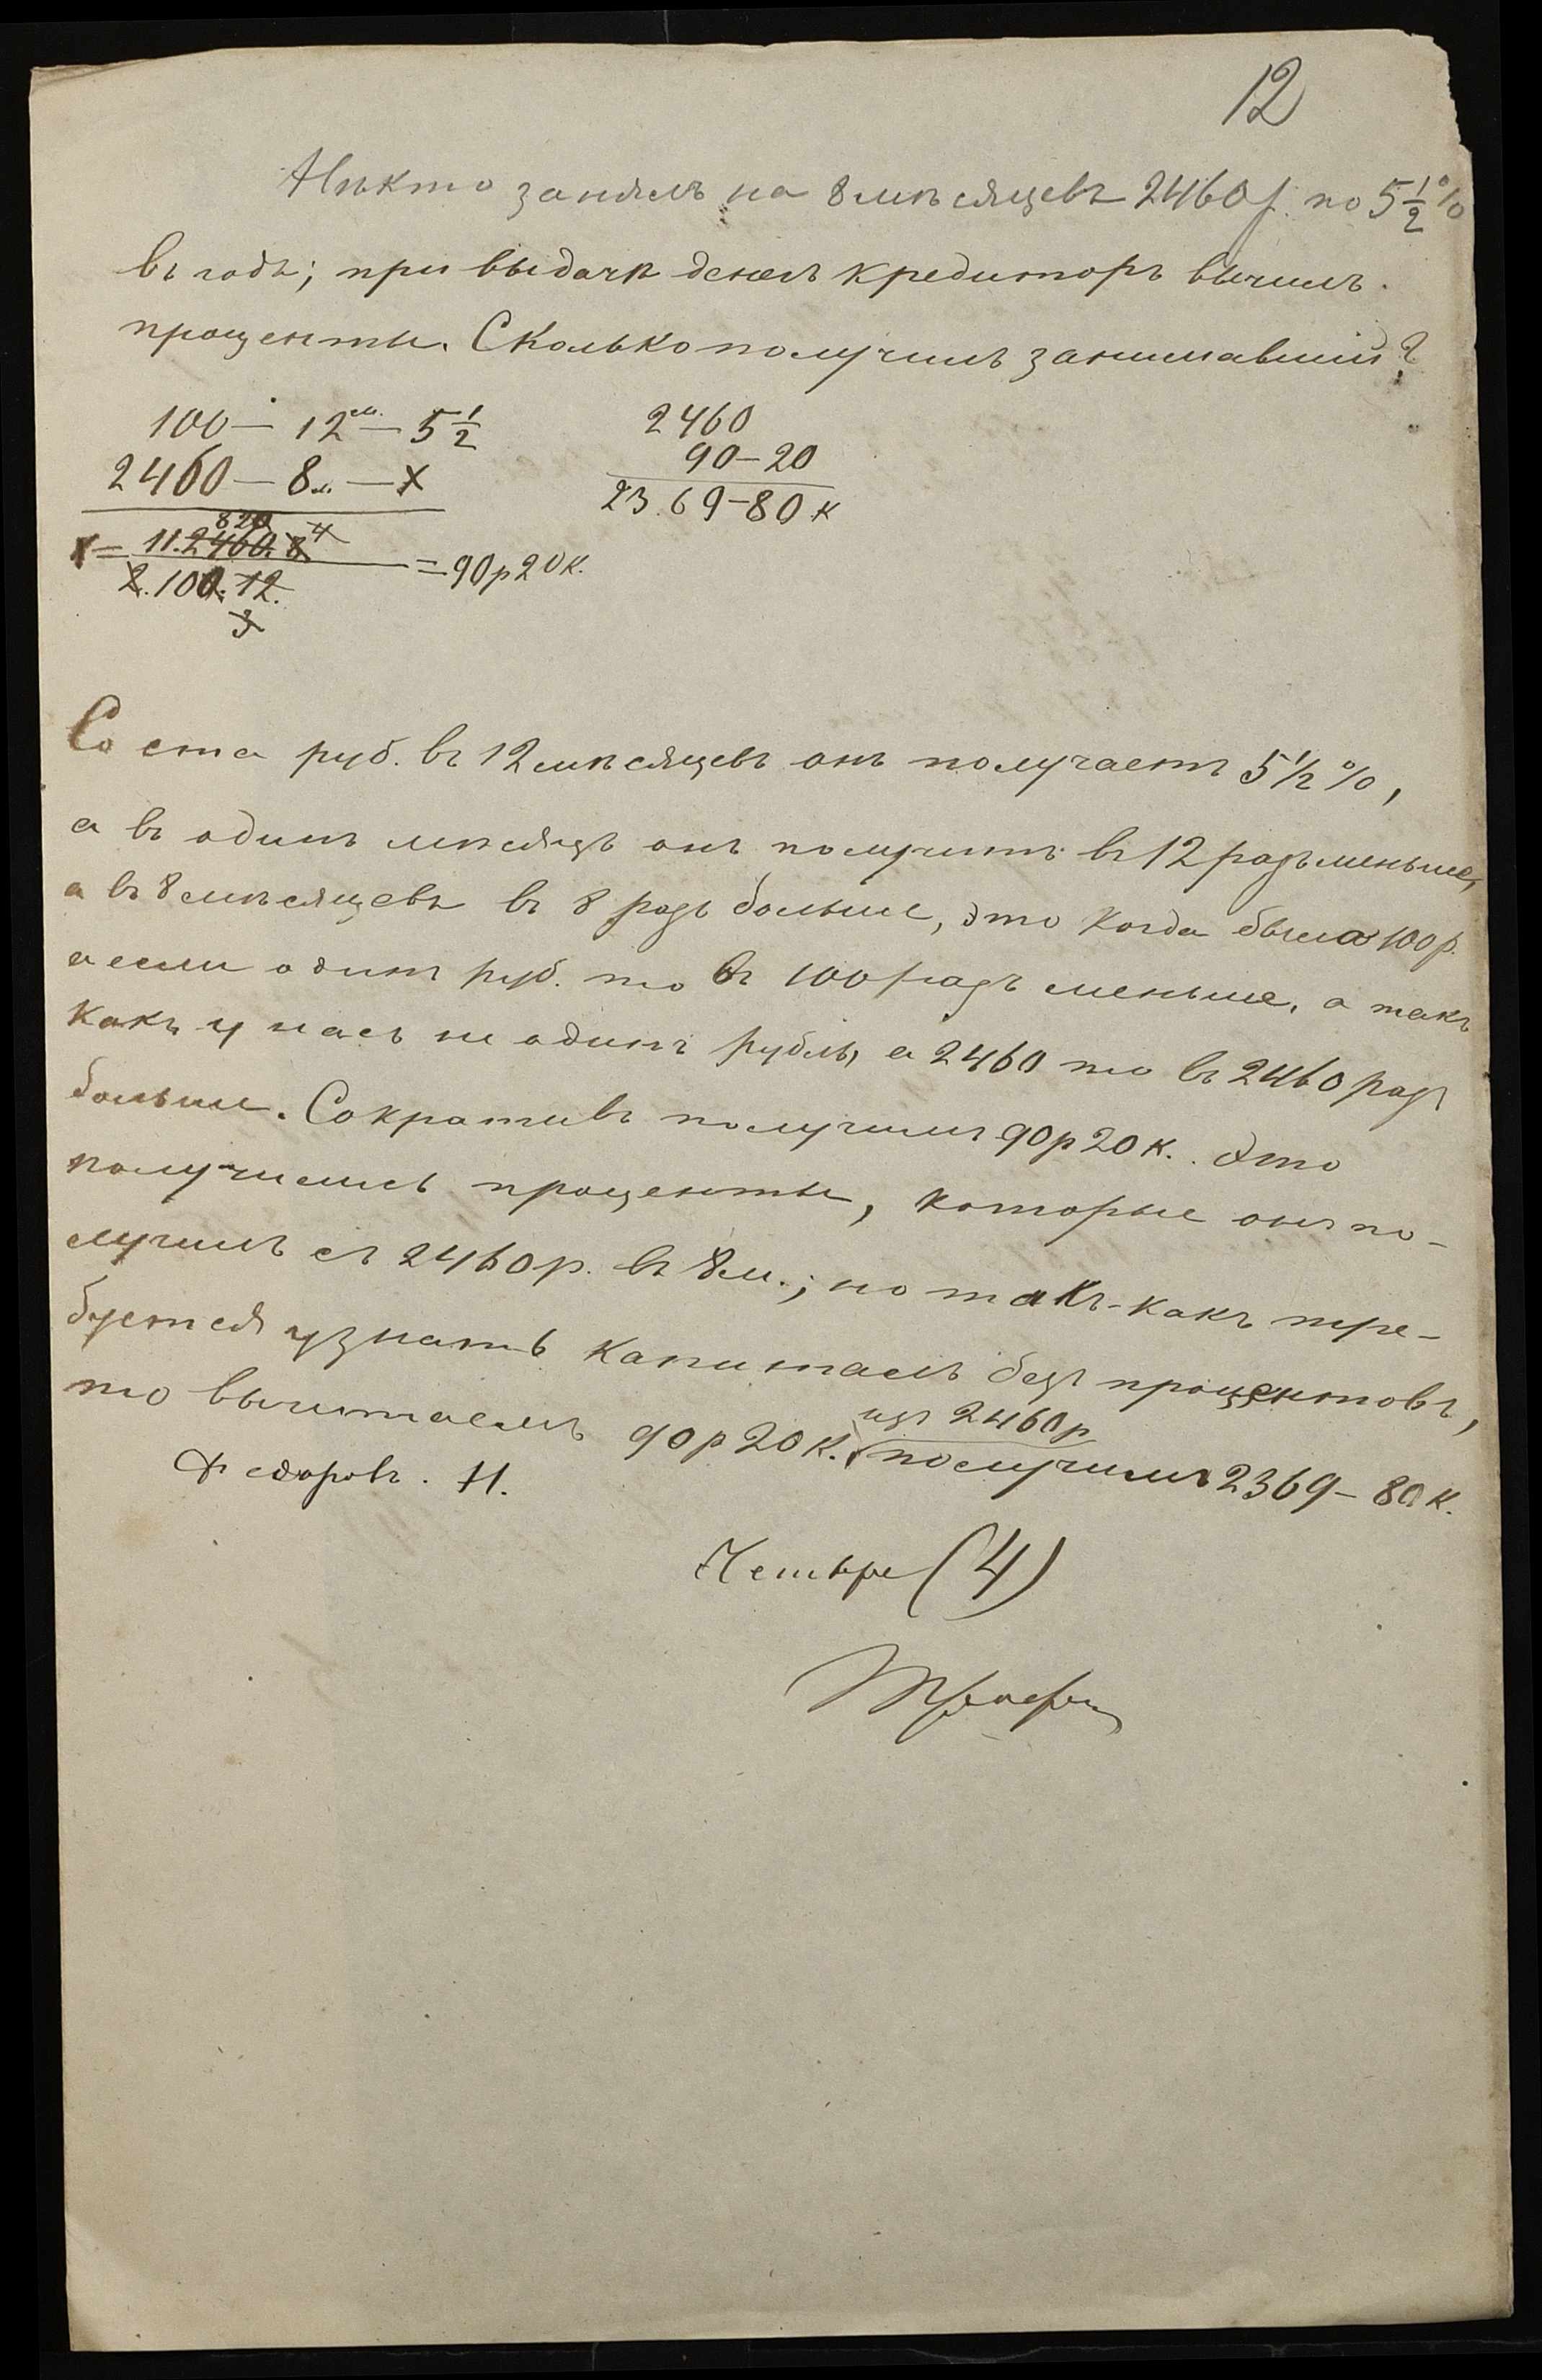 12
Нѣкто занялъ на 8 мѣсяцевъ 2460 р. по 5 1/2 %
въ годъ; при выдачѣ денегъ кредиторъ вычелъ
проценты. Сколько получилъ занимавшій?
100 — 12 м. — 5 1/2
2460 — 8 м. — x
820 4
x = 11.2460.8 = 90 р 20 к.
2.100.12.
3
2460
90 — 20
23.69 — 80 к
Со ста руб. въ 12 мѣсяцевъ онъ получаетъ 5 1/2 %,
а въ одинъ мѣсяцъ онъ получитъ въ 12 разъ меньше,
а въ 8 мѣсяцевъ въ 8 разъ больше, это когда было 100 р.
а если одинъ руб. то въ 100 разъ меньше, а такъ
какъ у насъ не одинъ рубль, а 2460 то въ 2460 разъ
больше. Сокративъ получимъ 90 р 20 к. Это
получились проценты, которые онъ по-
лучилъ съ 2460 р. въ 8 м.; но такъ-какъ тре-
буется узнать капиталъ безъ процентовъ,
изъ 2460 р
то вычитаемъ 90 р 20 к. получимъ 2369 — 80 к.
Федоровъ. Н.
Четыре (4)